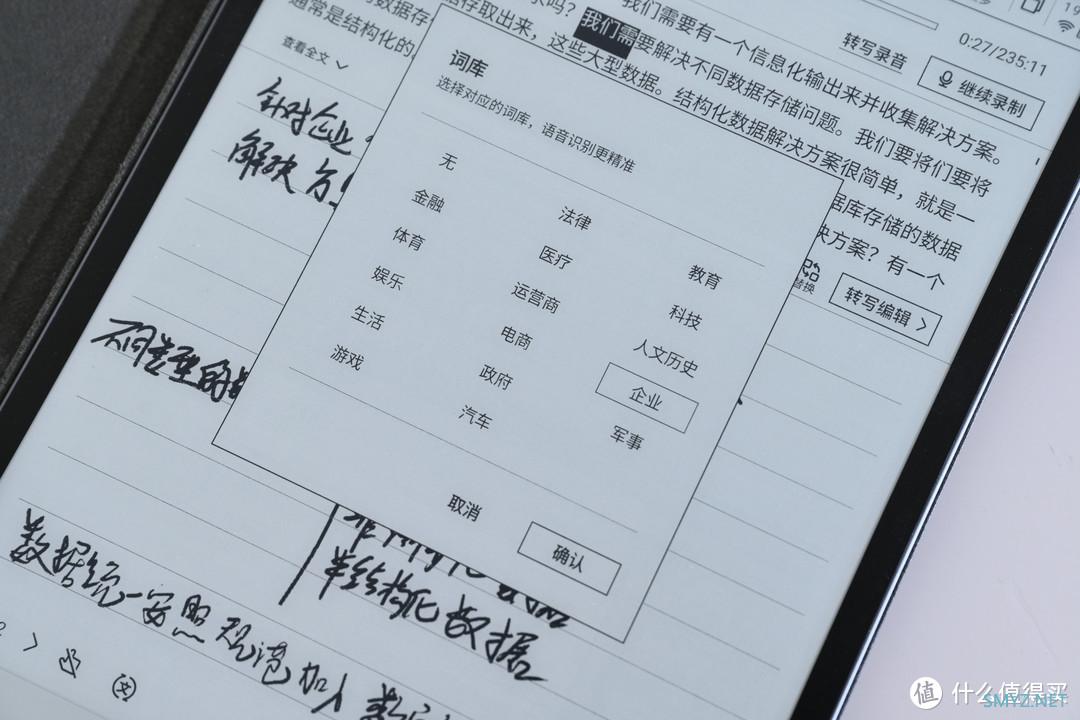 我们需要有一个信息化输出来并收集解决方案。
据存取出来，这些大型数据。结构化数据解决方案很简单，就是一
我们需要解决不同数据存储问题。我们要将们要将
数据存
通常是结构化的
据库存储的数据
决方案？有一个
查看全文
转写录音
0:27/235:11
继续录制
替换
转写编辑
词库
选择对应的词库，语音识别更精准
无
金融 法律
体育 医疗 教育
娱乐 运营商 科技
生活 电商 人文历史
游戏 政府 企业
汽车 军事
取消 确认
针对企业
解决方
不同类型的
半结构化数据
数据统一安照规范加入
值 什么值得买
SMYZ.NET